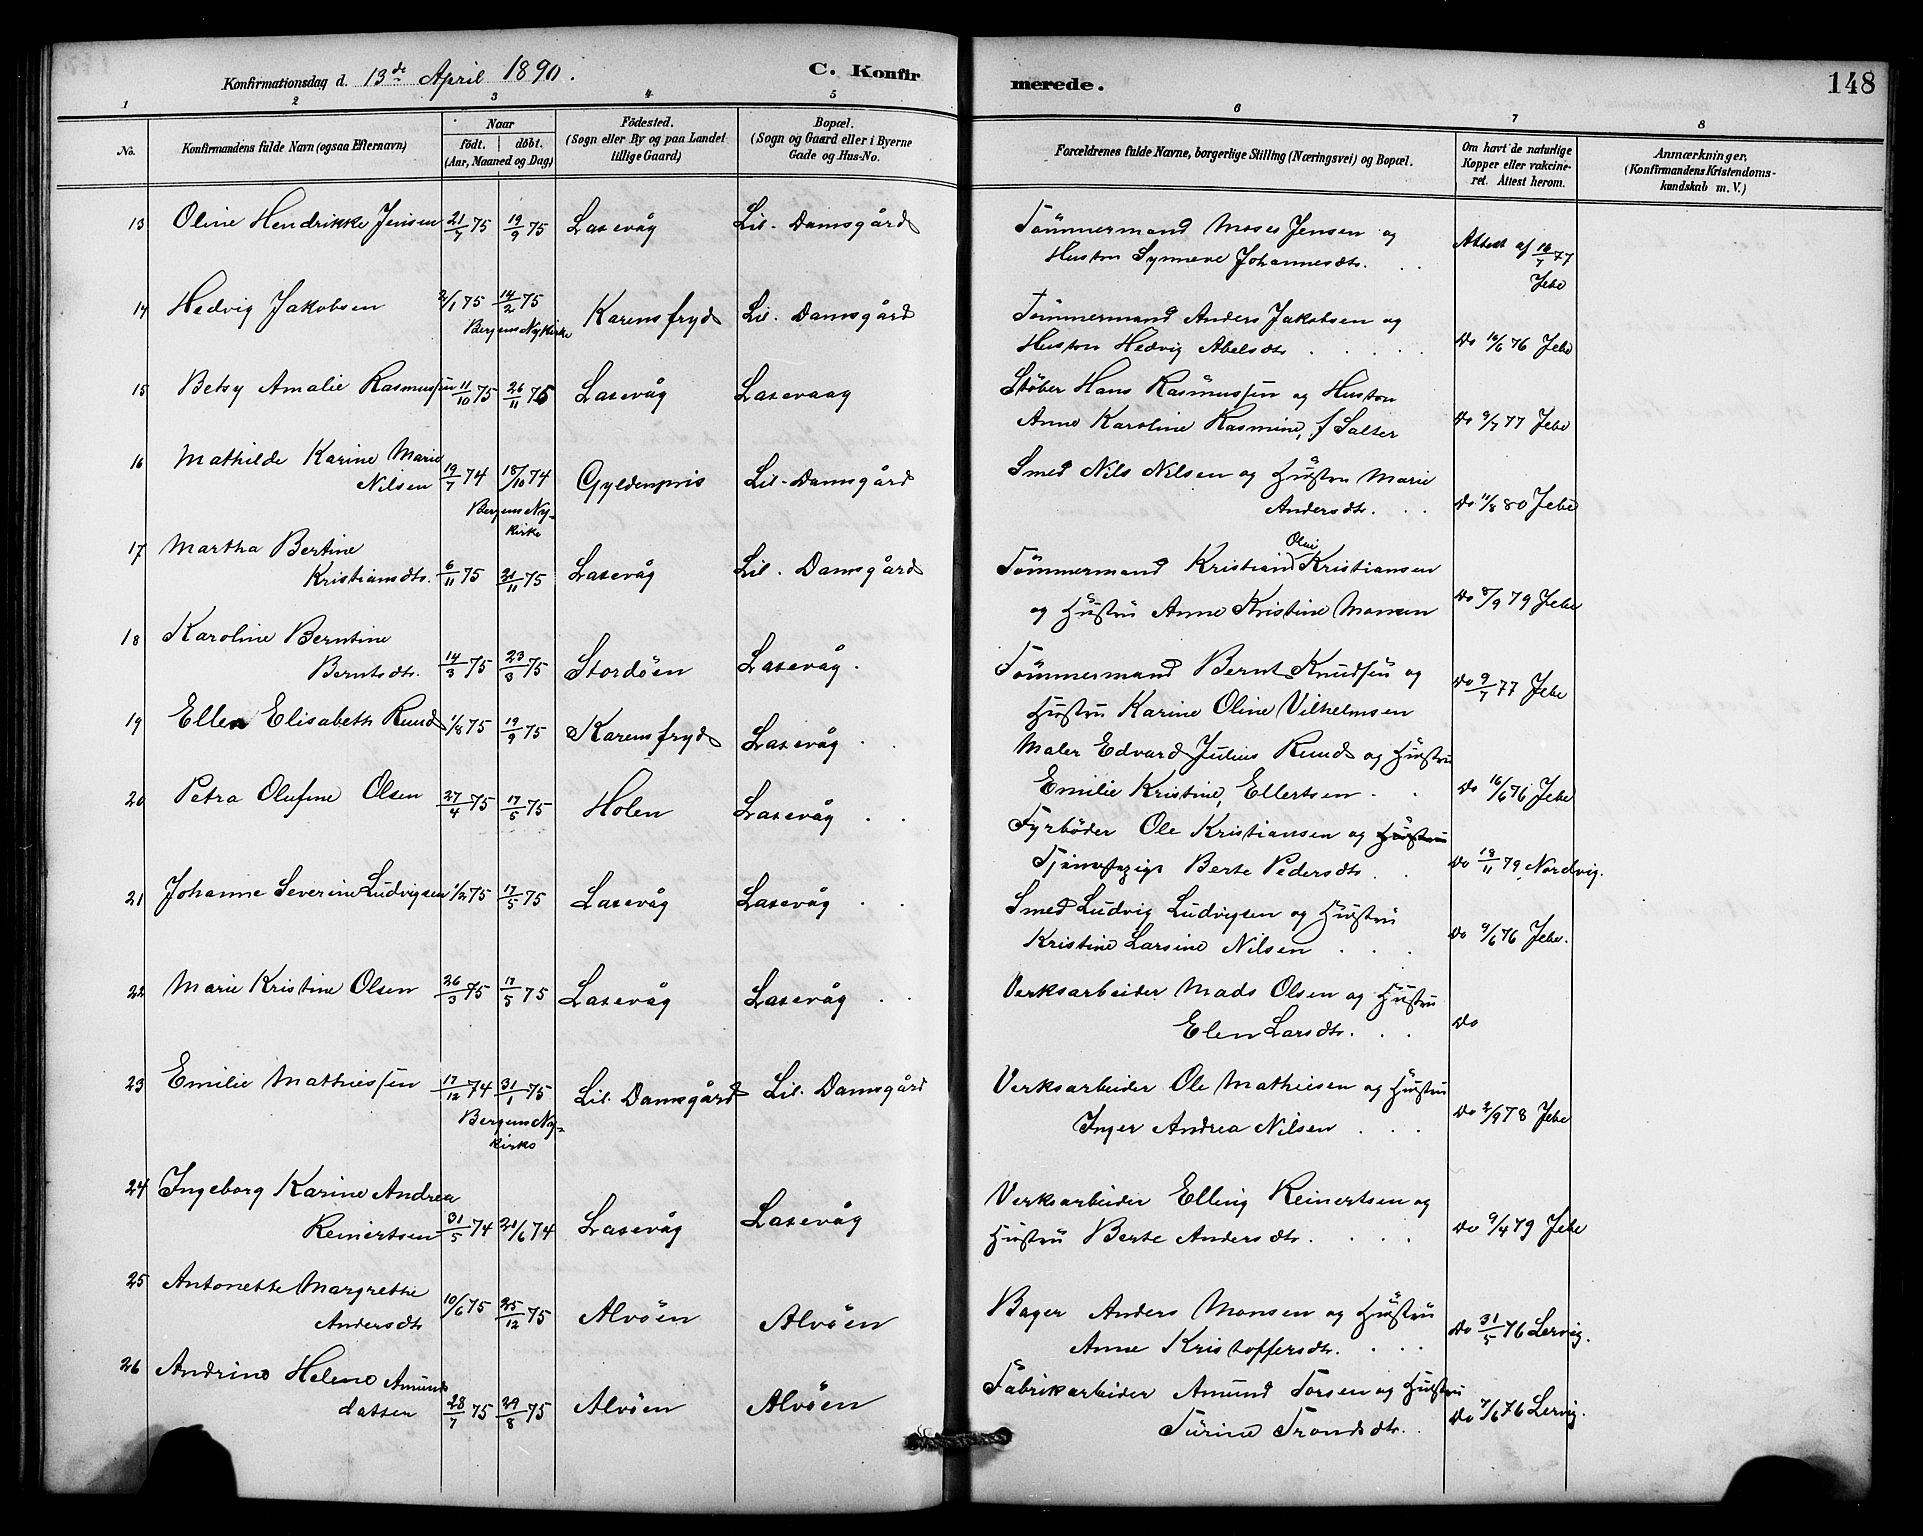 Konfirmationsdag d. 13de April 1890. C. Konfirmerede. 148
1 2 3 4 5 6 7 8
No. Konfirmandens fulde Navn (ogsaa Efternavn) Naar födt. döbt. (Aar, Maaned og Dag) Födested. (Sogn eller By og paa Landet tillige Gaard) Bopæl. (Sogn og Gaard eller i Byerne Gade og Hus-No. Forældrenes fulde Navne, borgerlige Stilling (Næringsvei) og Bopæl. Om havt de naturlige Kopper eller vakcineret. Attest herom. Anmærkninger. (Konfirmandens Kristendomskundskab m. V.)
13 Oline Hendrikke Jensen 21/7 75 19/9 75 Laxevåg Lil. Damsgård Tömmermand Moses Jensen og
Hustru Synneve Johannesdtr. Attest af 16/7 77 Jebe
14 Hedvig Jakobsen 2/1 75 14/2 75 Karensfryd Lil. Damsgård Tömmermand Anders Jakobsen og
Bergens Nykirke Hustru Hedvig Abelsdtr. Do 16/6 76 Jebe
15 Betsy Amalie Rasmussen 11/10 75 26/11 75 Laxevåg Laxevaag Støber Hans Rasmussen og Hustru
Anne Karoline Rasmine, f Salter Do 9/7 77 Jebe
16 Mathilde Karine Marie
Nilsen 19/7 74 18/10 74 Gyldenpris Lil. Damsgård Smed Nils Nilsen og Hustru Marie
Bergens Nykirke Andersdtr. Do 11/8 80 Jebe
17 Martha Bertine
Kristiansdtr. 6/11 75 21/11 75 Laxevåg Lil. Damsgård Tömmermand Kristian Olai Kristiansen
og Hustru Anne Kristine Monsen Do 8/9 79 Jebe
18 Karoline Berntine
Berntsdtr. 14/3 75 23/3 75 Stordöen Laxevåg. Tömmermand Bernt Knudsen og
Hustru Karine Oline Vilhelmsen Do 9/7 77 Jebe
19 Ellen Elisabeth Rund 1/8 75 19/9 75 Karensfryd Laxevåg Maler Edvard Julius Rund og Hustru
Emilie Kristine, Ellertsen Do 16/6 76 Jebe
20 Petra Olufine Olsen 27/4 75 17/5 75 Holen Laxevåg Fyrböder Ole Kristiansen og Hustru
Berte Pedersdtr. Do 18/11 79 Nordvig.
21 Johanne Severine Ludvigsen 1/2 75 17/5 75 Laxevåg Laxevåg Smed Ludvig Ludvigsen og Hustru
Kristine Larsine Nilsen Do 9/6 76 Jebe.
22 Marie Kristine Olsen 26/3 75 17/5 75 Laxevåg Laxevåg Verksarbeider Mads Olsen og Hustru
Elen Larsdtr. Do
23 Emilie Mathiessen 17/12 74 31/1 75 Lil. Damsgård Lil. Damsgård Verksarbeider Ole Mathiesen og Hustru
Bergens Nykirke Inger Andrea Nilsen Do 2/9 78 Jebe
24 Ingeborg Karine Andrea
Reinertsen 31/5 74 21/6 74 Laxevåg Laxevåg Verksarbeider Elling Reinertsen og
Hustru Berte Andersdtr. Do 9/4 79 Jebe
25 Antonette Margrethe
Andersdtr 10/6 75 25/12 75 Alvöen Alvöen Bager Anders Monsen og Hustru
Anne Kristoffersdtr. Do 31/5 76 Lervig.
26 Andrine Helene Amunds
datter 28/7 75 29/8 75 Alvöen Alvöen Fabrikarbeider Amund Torsen og Hustru
Turine Trondsdtr. Do 7/6 76 Lervig.